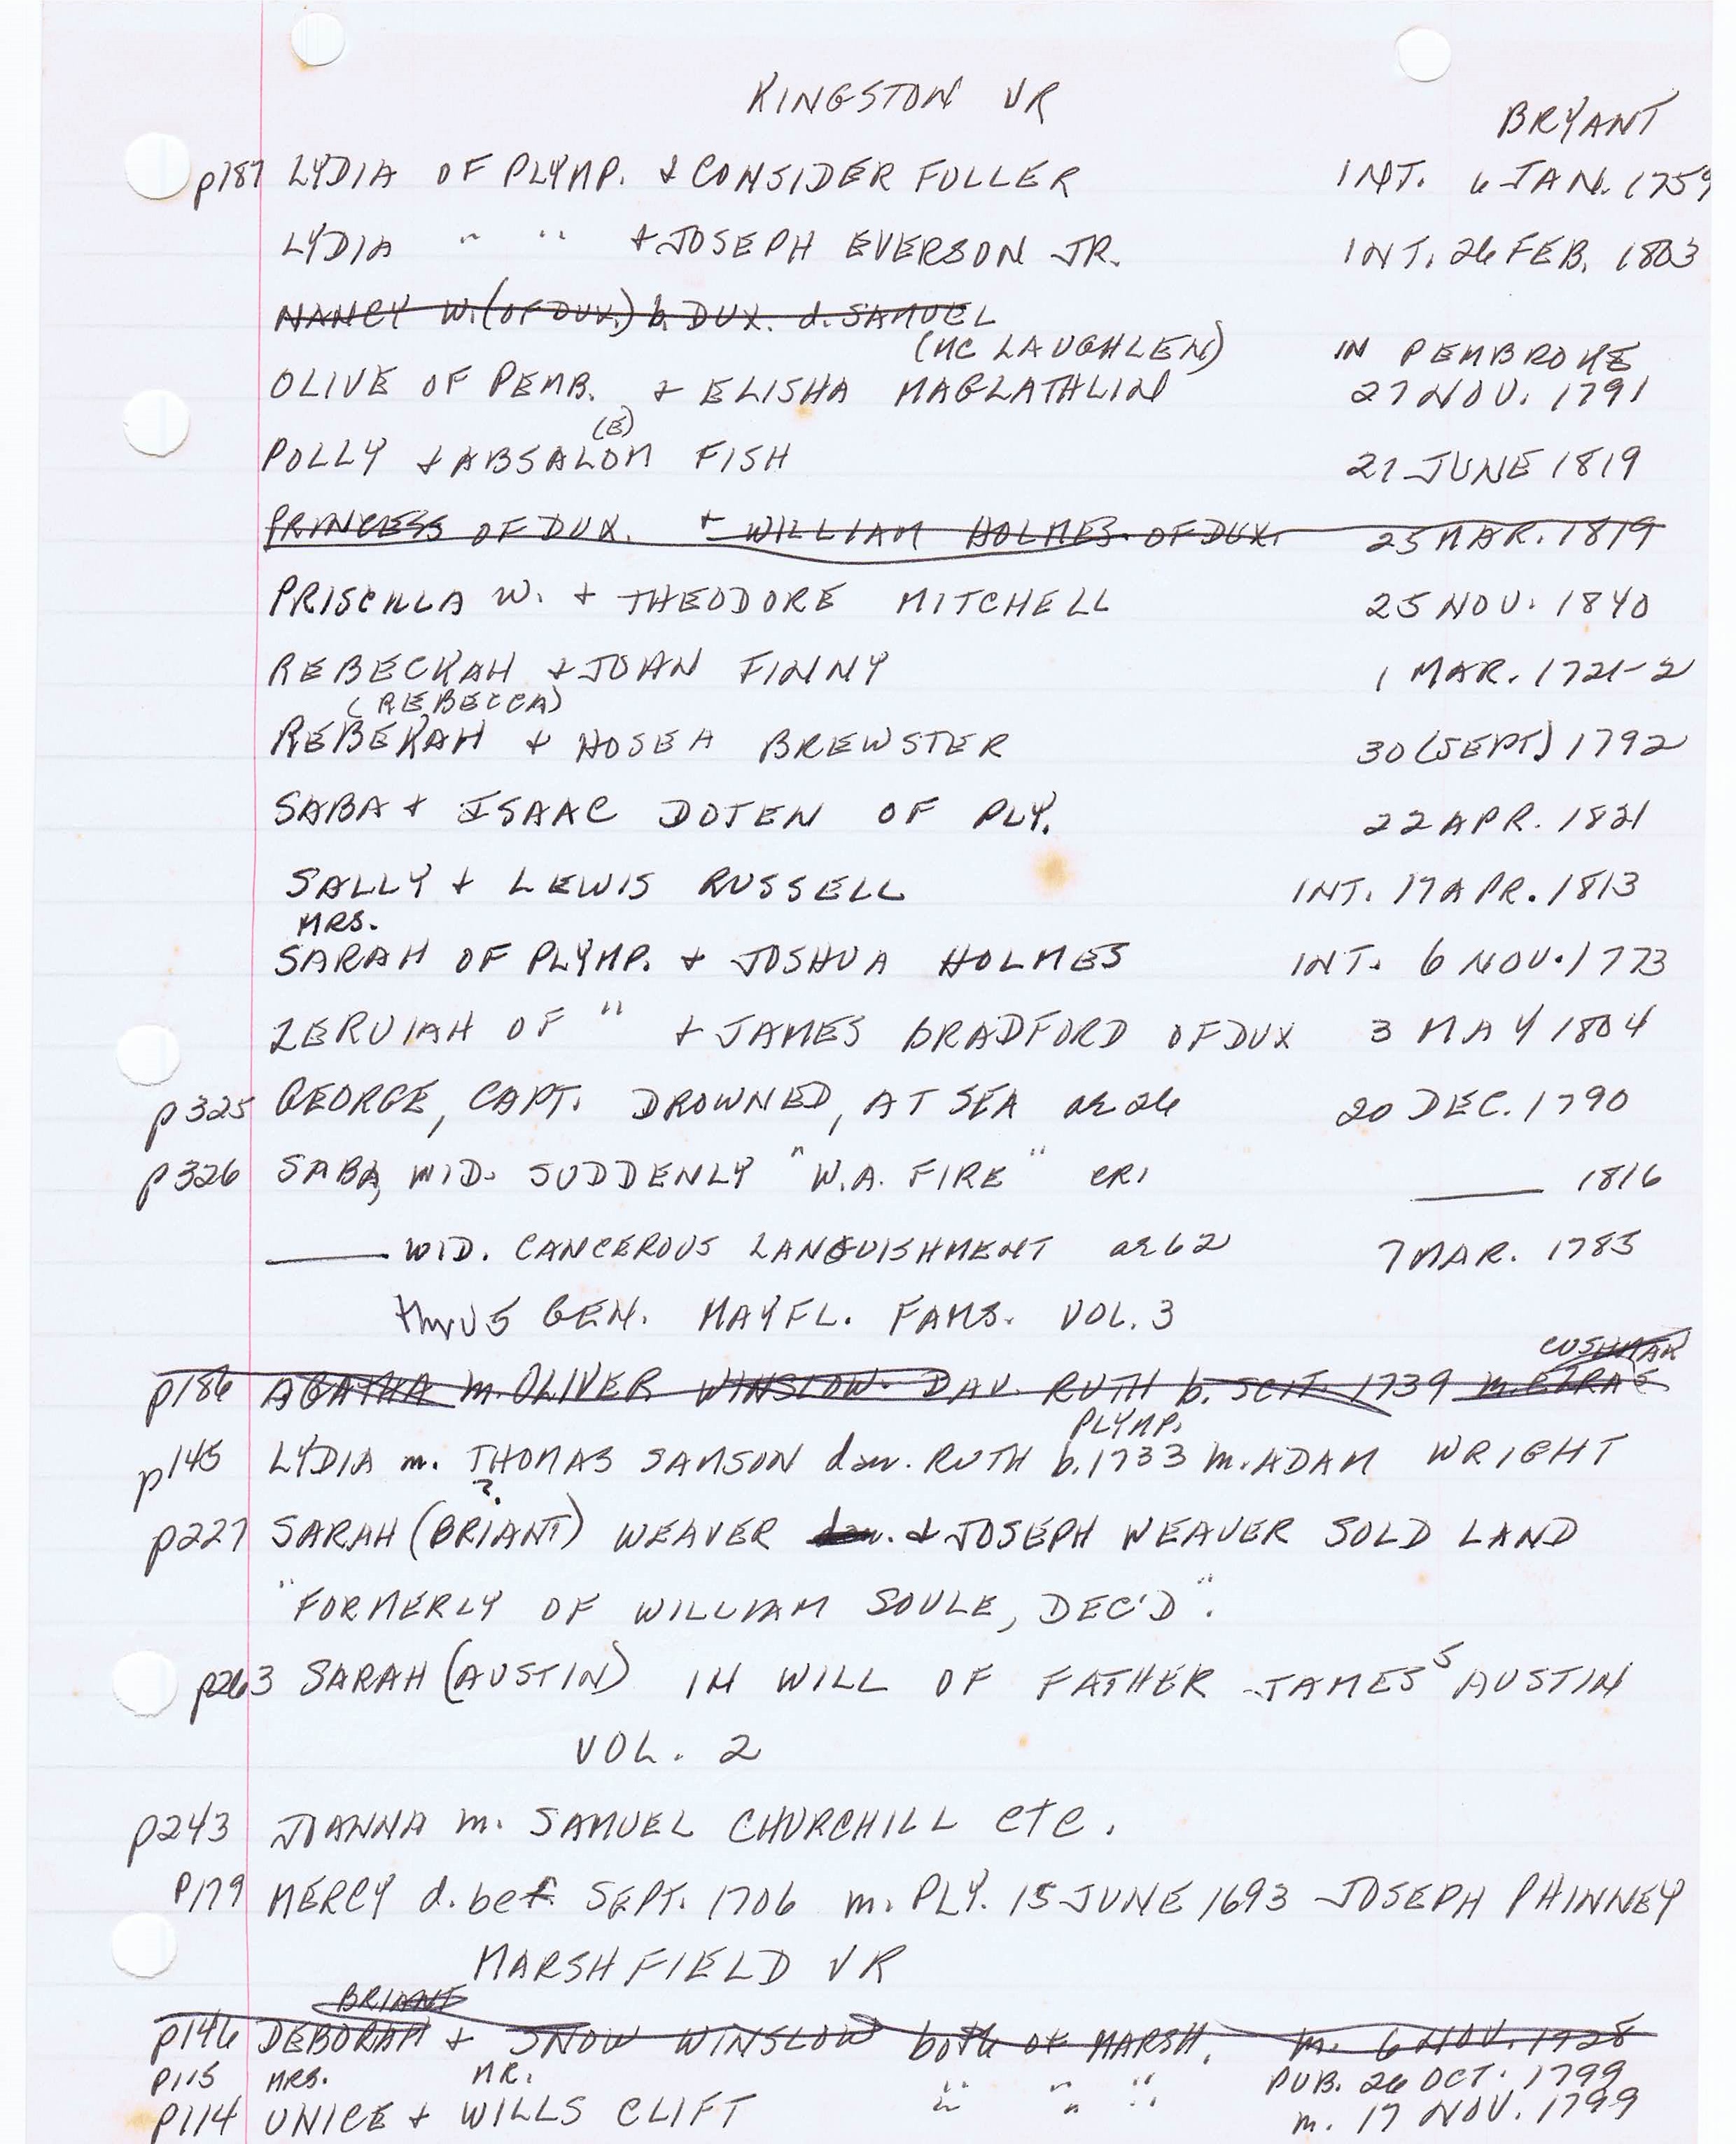 KINGSTON VR
BRYANT
p187 LYDIA OF PLYMP. & CONSIDER FULLER INT. 6 JAN. 1759
LYDIA " " & JOSEPH EVERSON JR. INT. 26 FEB. 1803
NANCY W. (OF DUX.) b. DUX. d. SAMUEL
(MC LAUGHLEN) IN PEMBROKE
OLIVE OF PEMB. & ELISHA MAGLATHLIN 27 NOV. 1791
(E)
POLLY & ABSALOM FISH 27 JUNE 1819
PRINCESS OF DUX. & WILLIAM HOLMES OF DUX. 25 MAR. 1819
PRISCILLA W. & THEODORE MITCHELL 25 NOV. 1840
REBECKAH & JOHN FINNY 1 MAR. 1721-2
(REBECCA)
REBEKAH & HOSEA BREWSTER 30 (SEPT) 1792
SABA & ISAAC DOTEN OF PLY. 22 APR. 1821
SALLY & LEWIS RUSSELL INT. 17 APR. 1813
MRS.
SARAH OF PLYMP. & JOSHUA HOLMES INT. 6 NOV. 1773
ZERUIAH OF " & JAMES BRADFORD OF DUX 3 MAY 1804
p325 GEORGE, CAPT. DROWNED, AT SEA ae 26 20 DEC. 1790
p326 SABA, WID. SUDDENLY "W.A. FIRE" CR1 ____ 1816
____ WID. CANCEROUS LANGUISHMENT ae 62 7 MAR. 1783
thru 5 GEN. MAYFL. FAMS. VOL. 3
CUSHMAN
p186 AGATHA m. OLIVER WINSLOW. DAU. RUTH b. SCIT. 1739 m.
PLYMP.
p145 LYDIA m. THOMAS SAMSON dau. RUTH b. 1733 m. ADAM WRIGHT
?
p227 SARAH (BRIANT) WEAVER dau. & JOSEPH WEAVER SOLD LAND
"FORMERLY OF WILLIAM SOULE, DEC'D".
p263 SARAH (AUSTIN) IN WILL OF FATHER JAMES⁵ AUSTIN
VOL. 2
p243 JOANNA m. SAMUEL CHURCHILL etc.
P179 MERCY d. bef. SEPT. 1706 m. PLY. 15 JUNE 1693 JOSEPH PHINNEY
MARSHFIELD VR
BRIANT
p146 DEBORAH & SNOW WINSLOW both of MARSH. m. 6 NOV. 1728
P115 MRS. MR. " " " PUB. 26 OCT. 1799
P114 UNICE & WILLS CLIFT " " " m. 17 NOV. 1799